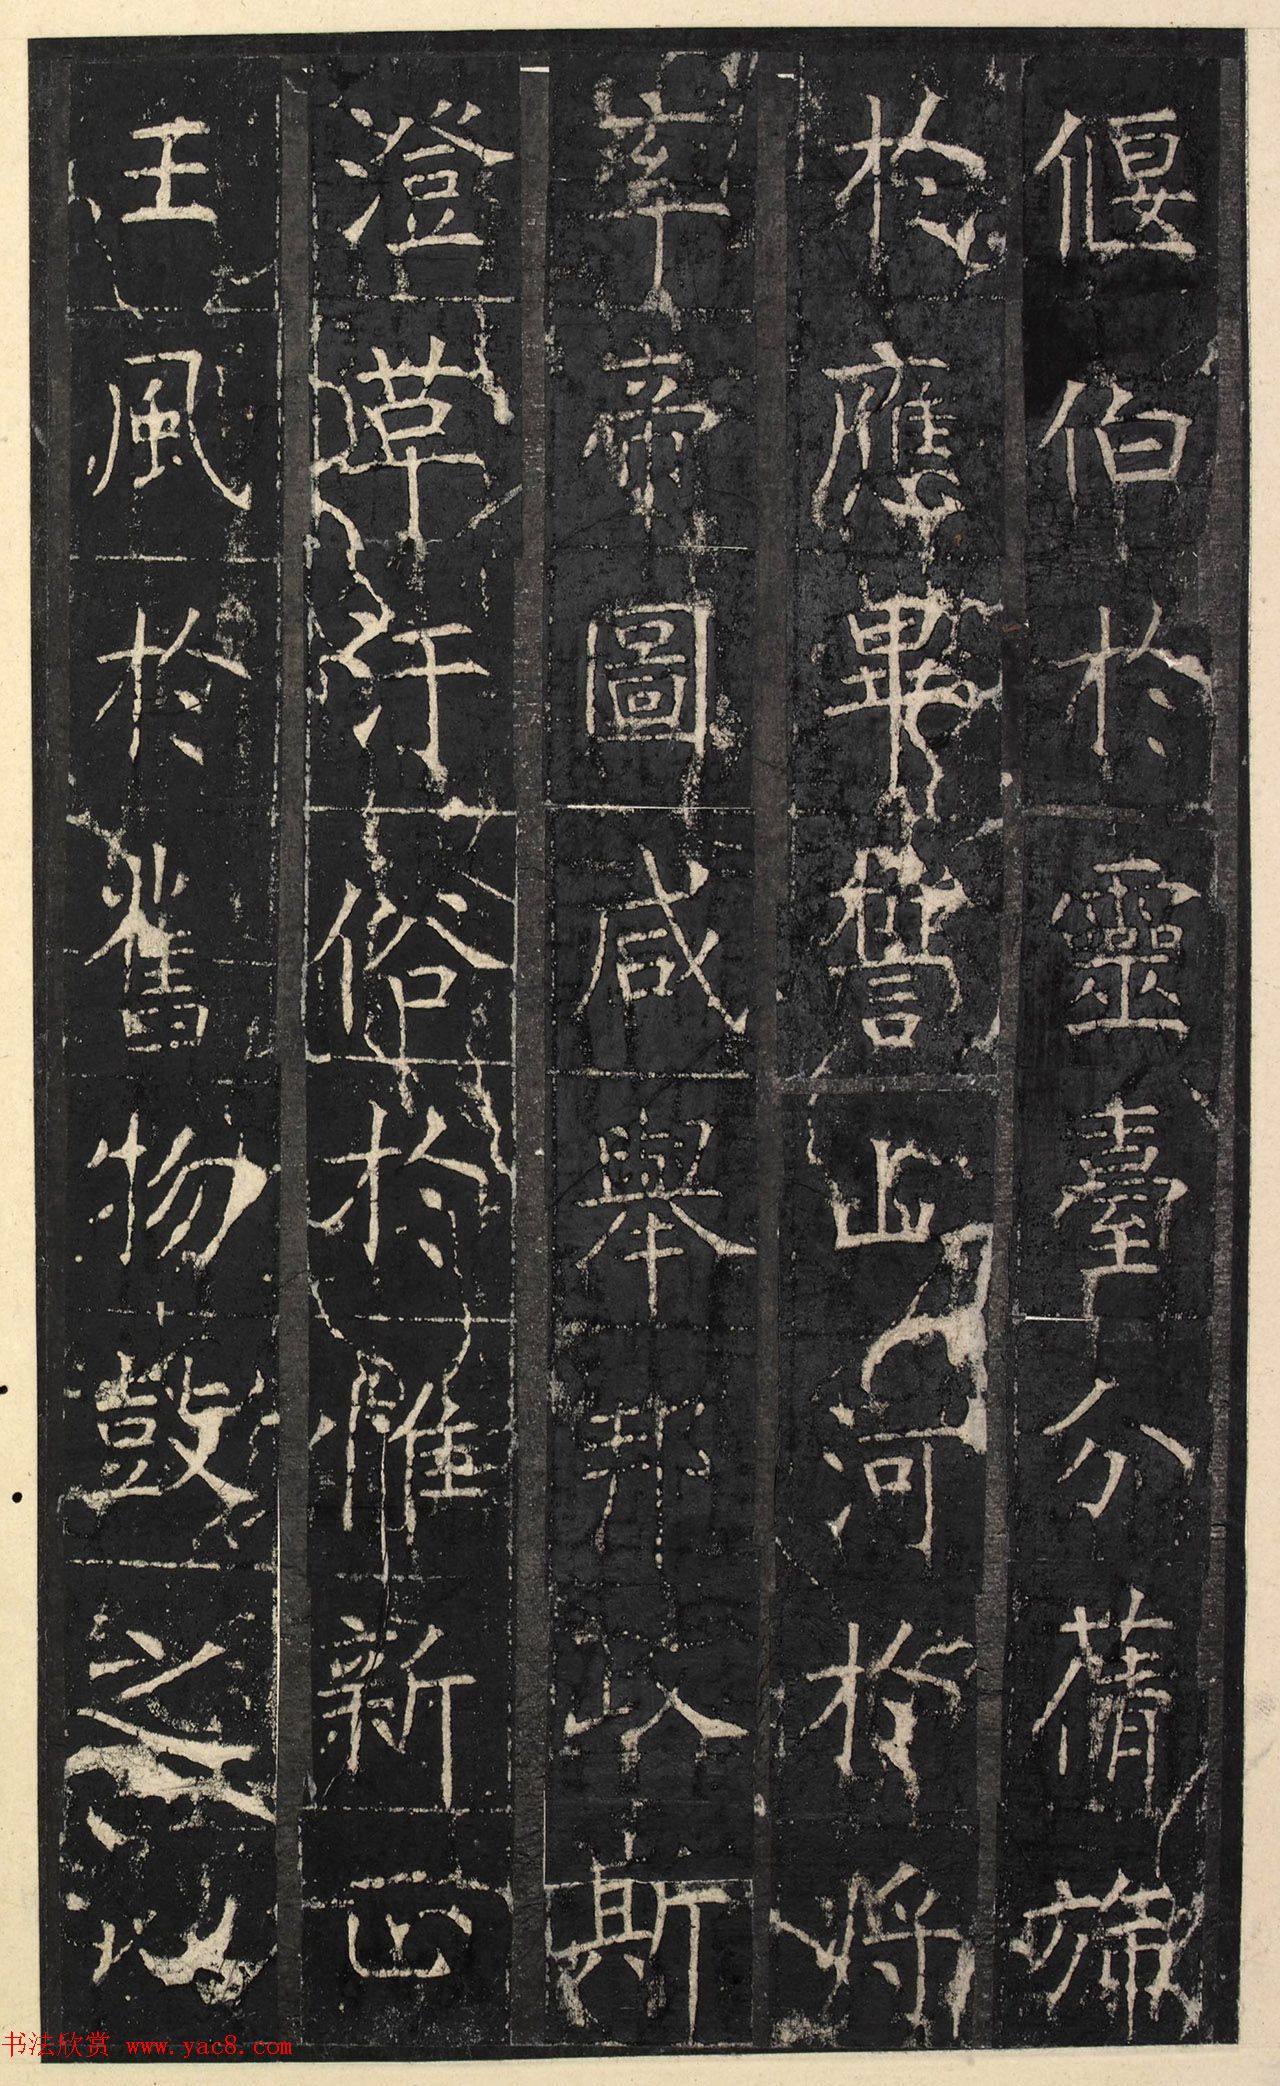 偃伯於靈臺分蒨旆
於應畢誓山河於將
率帝圖咸舉邦政斯
澄革汙俗於惟新正
王風於舊物鼓之以
书法欣赏 www.yac8.com